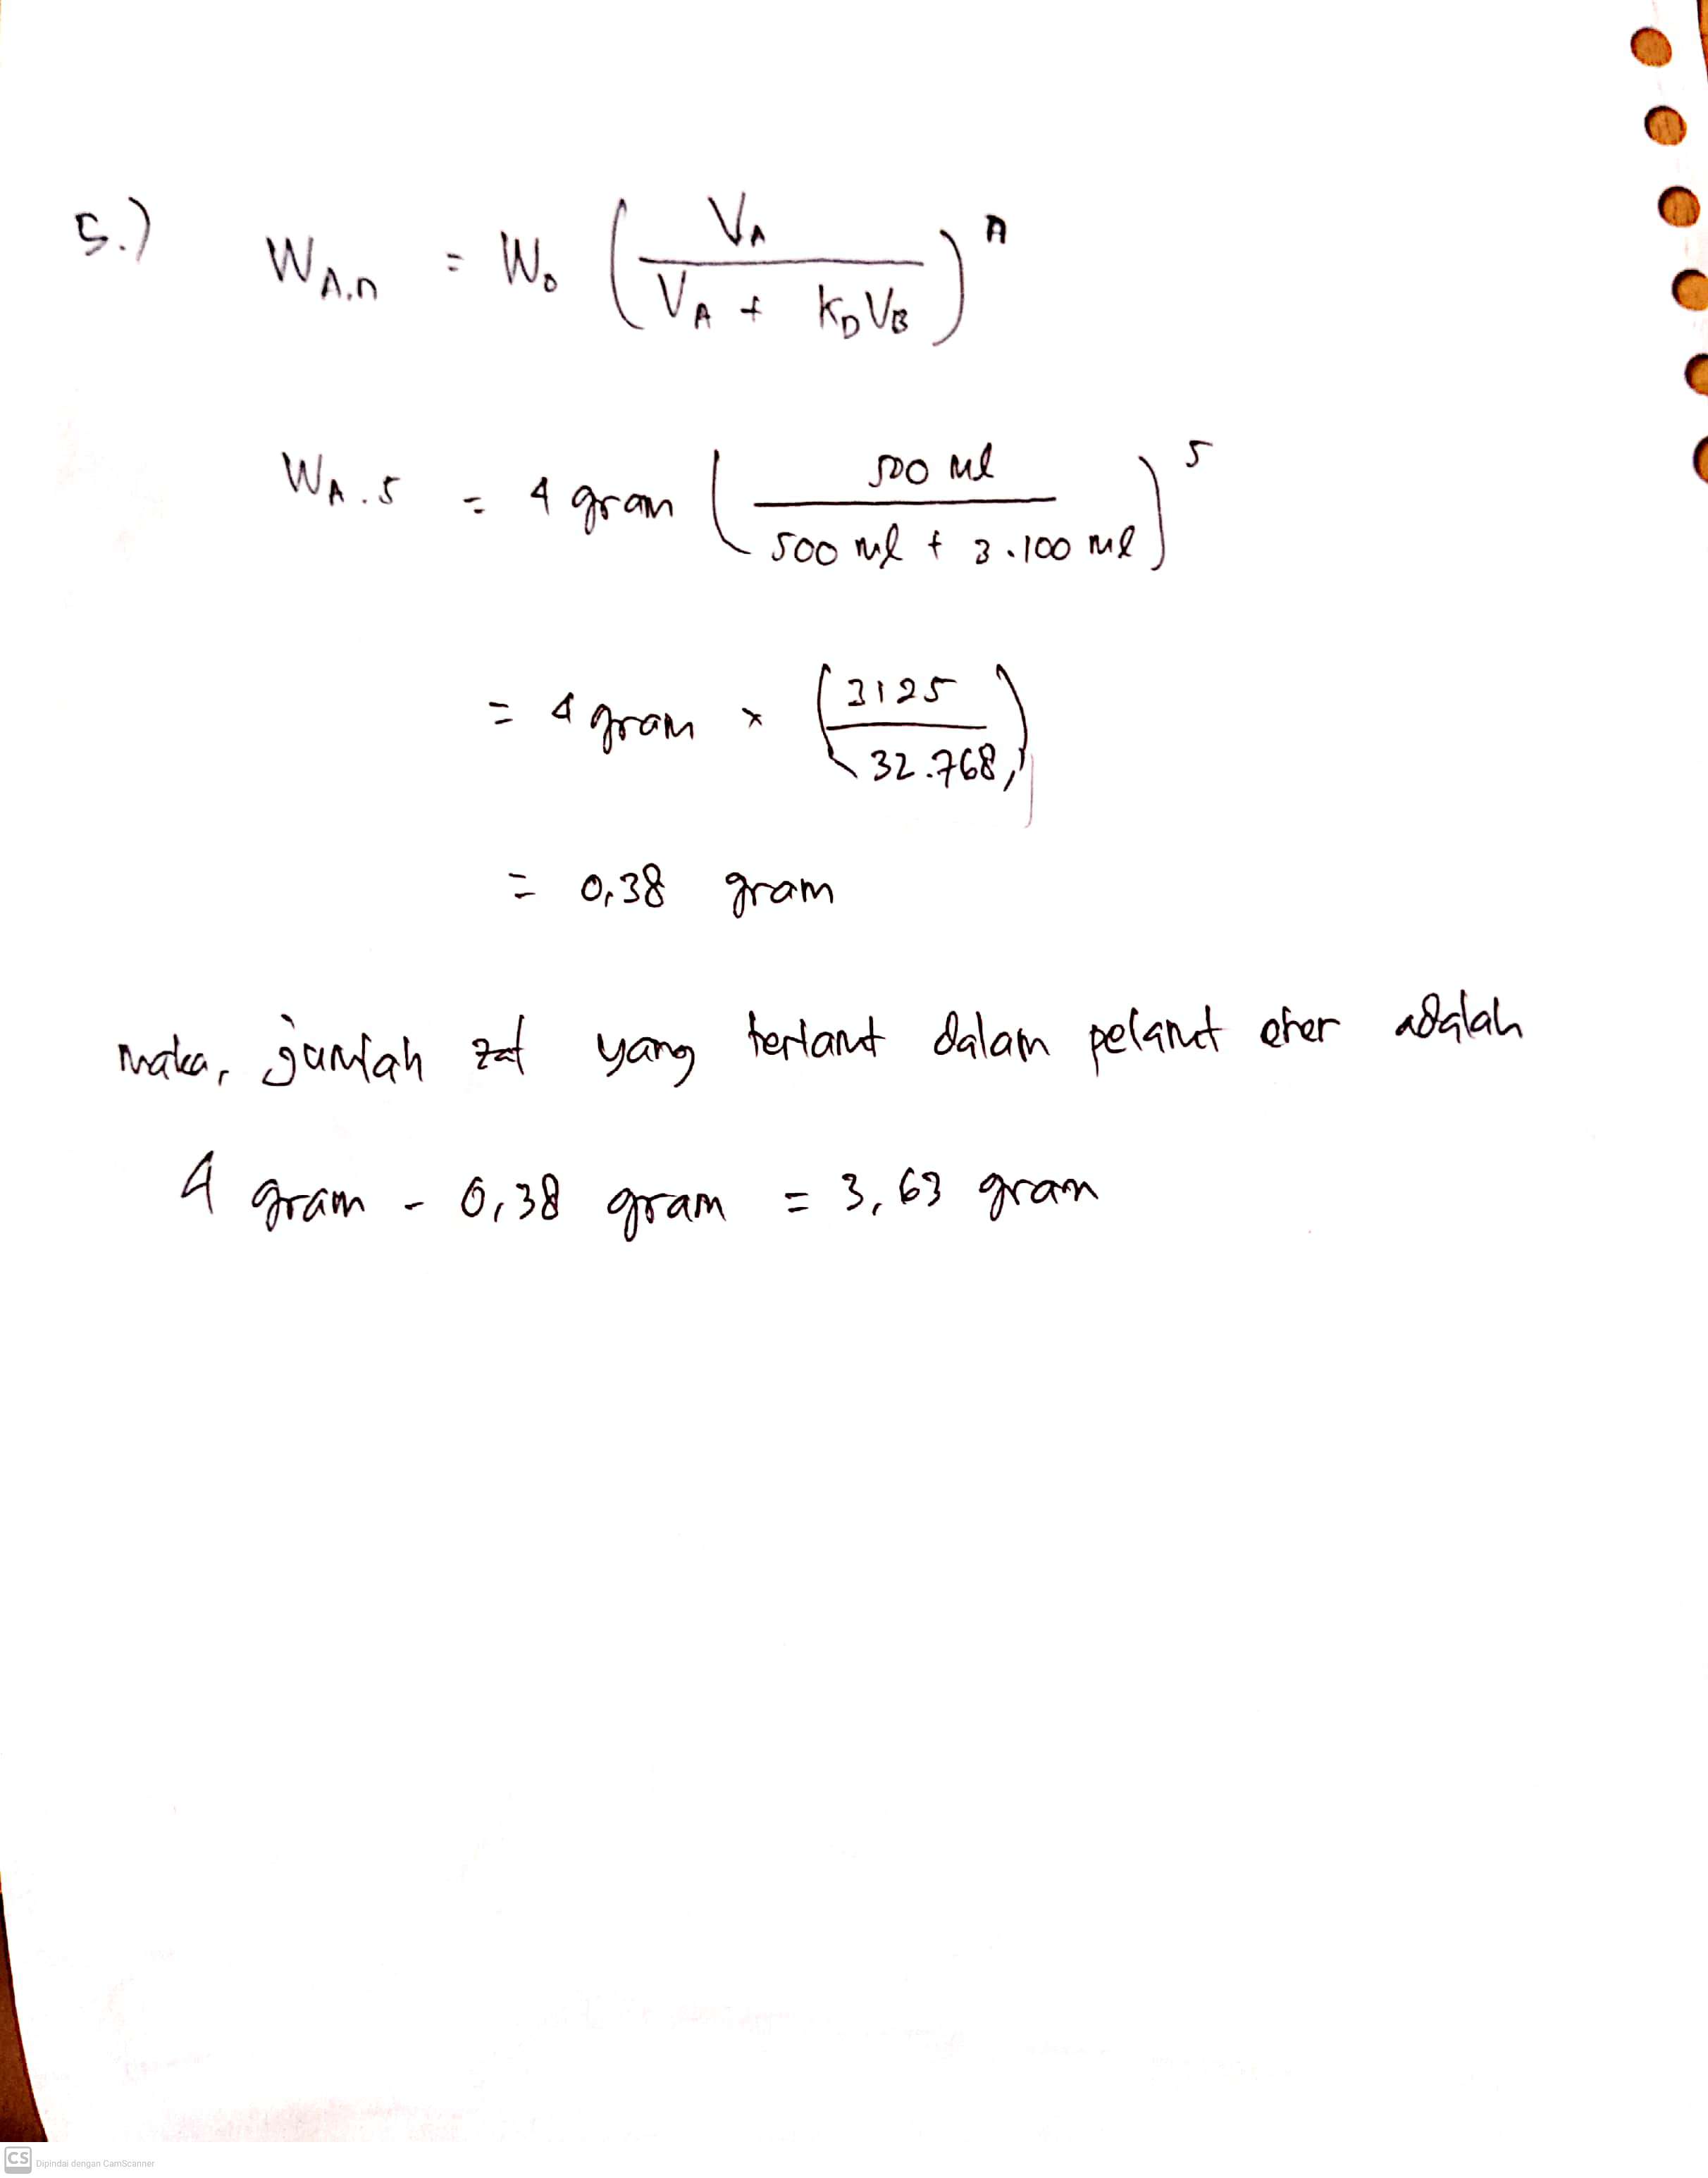 5.) W_{A.n} = W_0 (V_A / (V_A + K_D V_B))^n
W_{A.5} = 4 gram (500 ml / (500 ml + 3.100 ml))^5
= 4 gram x (3125 / 32.768)
= 0,38 gram
maka, jumlah zat yang terlarut dalam pelarut eter adalah
4 gram - 0,38 gram = 3,63 gram
CS Dipindai dengan CamScanner